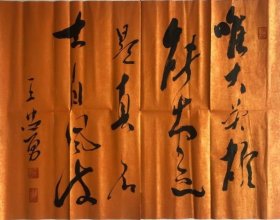 唯大英雄
能本色
是真名
士自风流
王忠勇